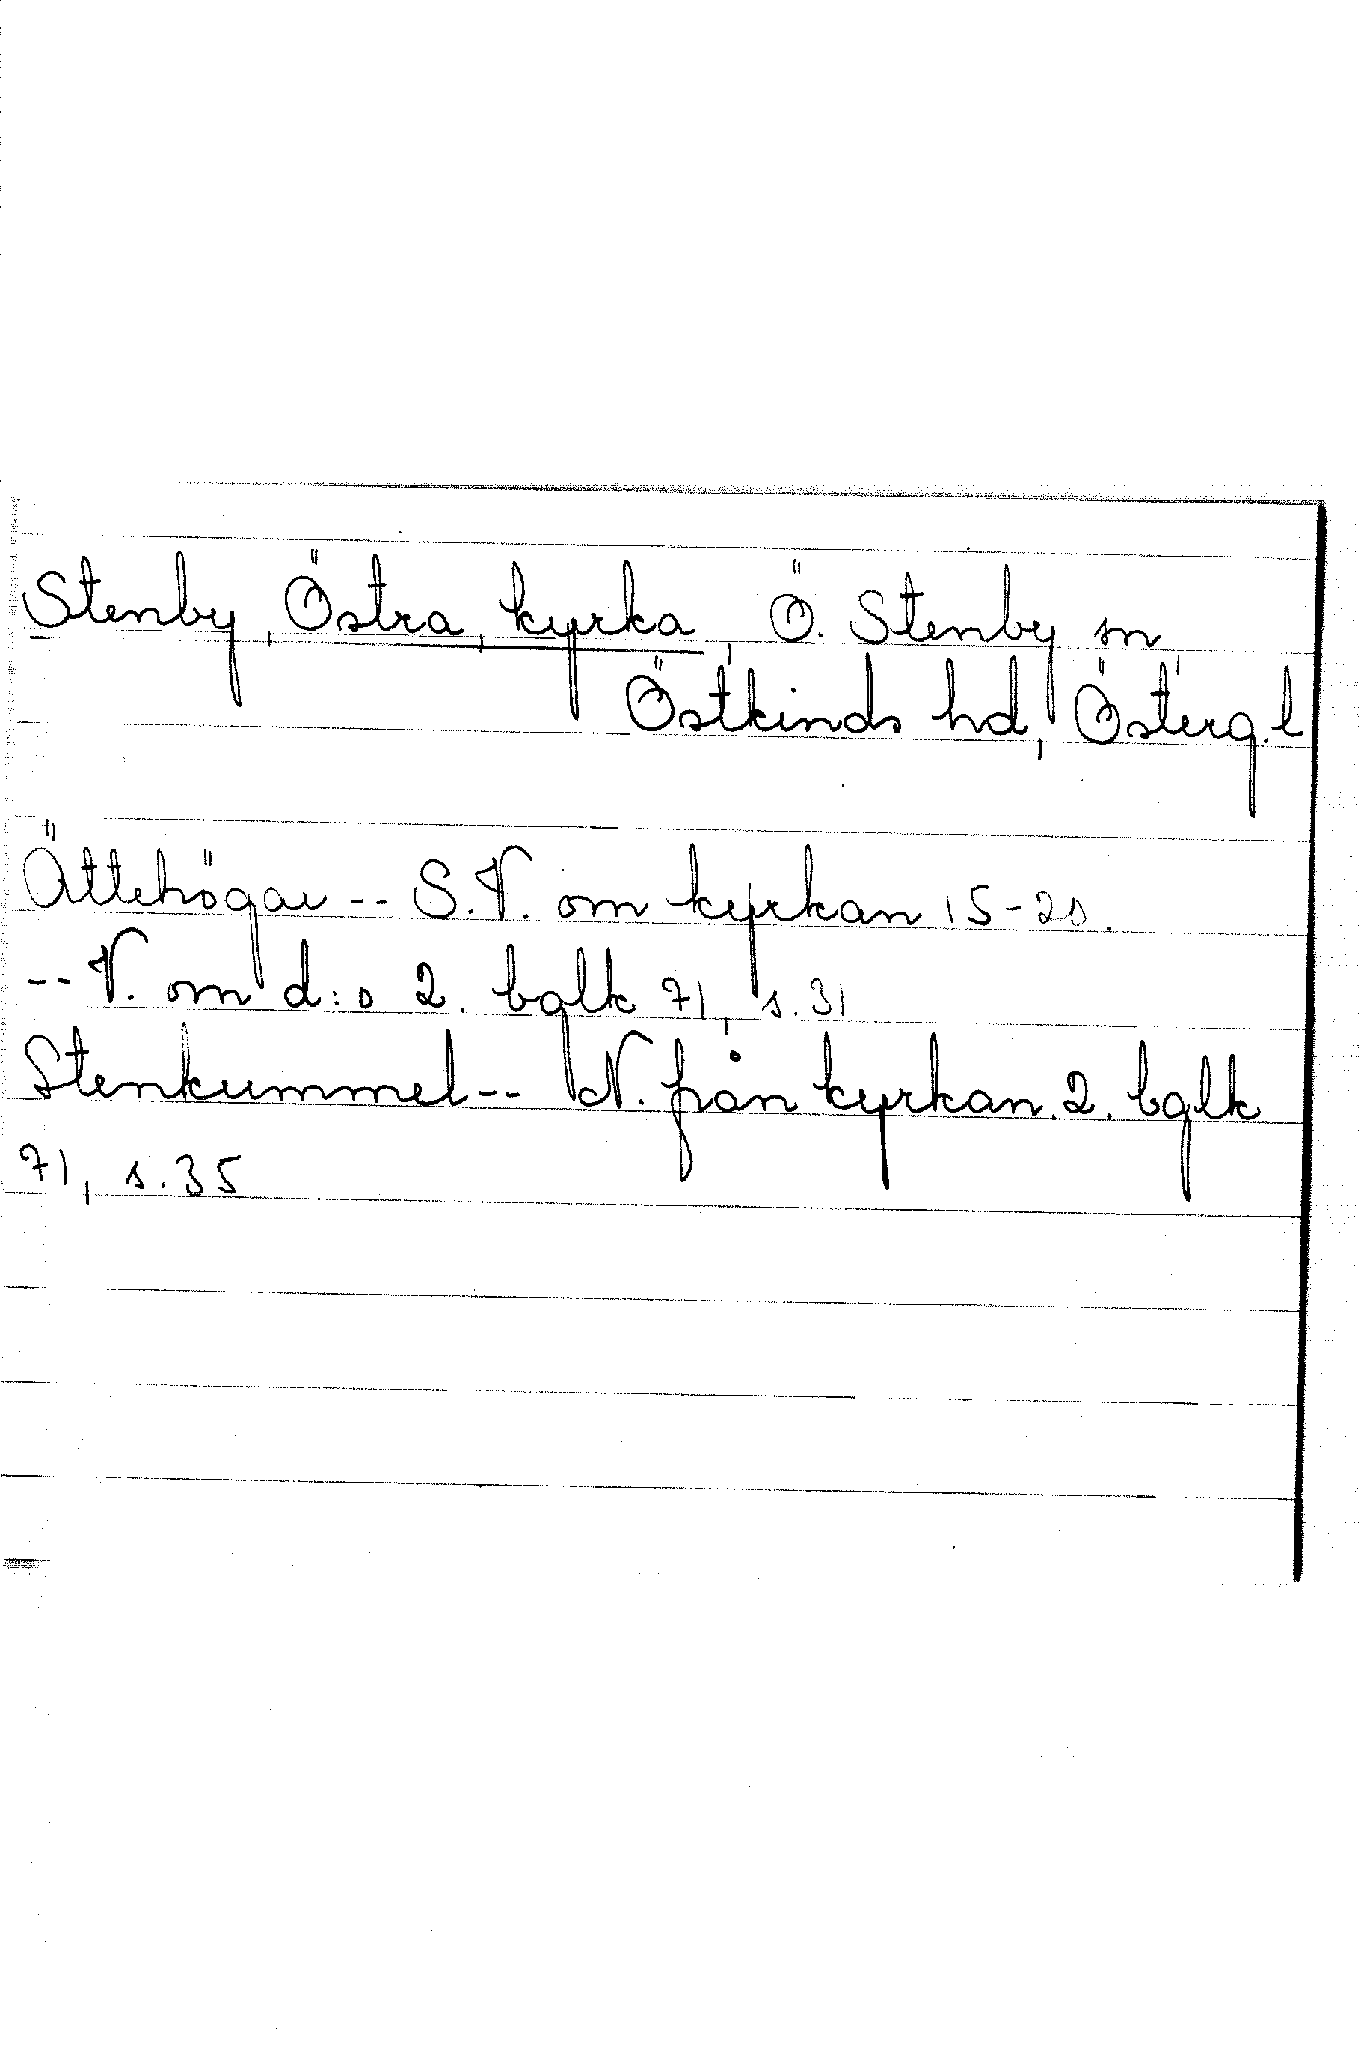 Stenby, Östra, kyrka, Ö. Stenby sn,
Östkinds hd, Österg. l
Ättehögar -- S.V. om kyrkan 15-20.
-- V. om d:o 2. bglk 71, s. 31
Stenkummel -- N. från kyrkan. 2. bglk
71, s. 35